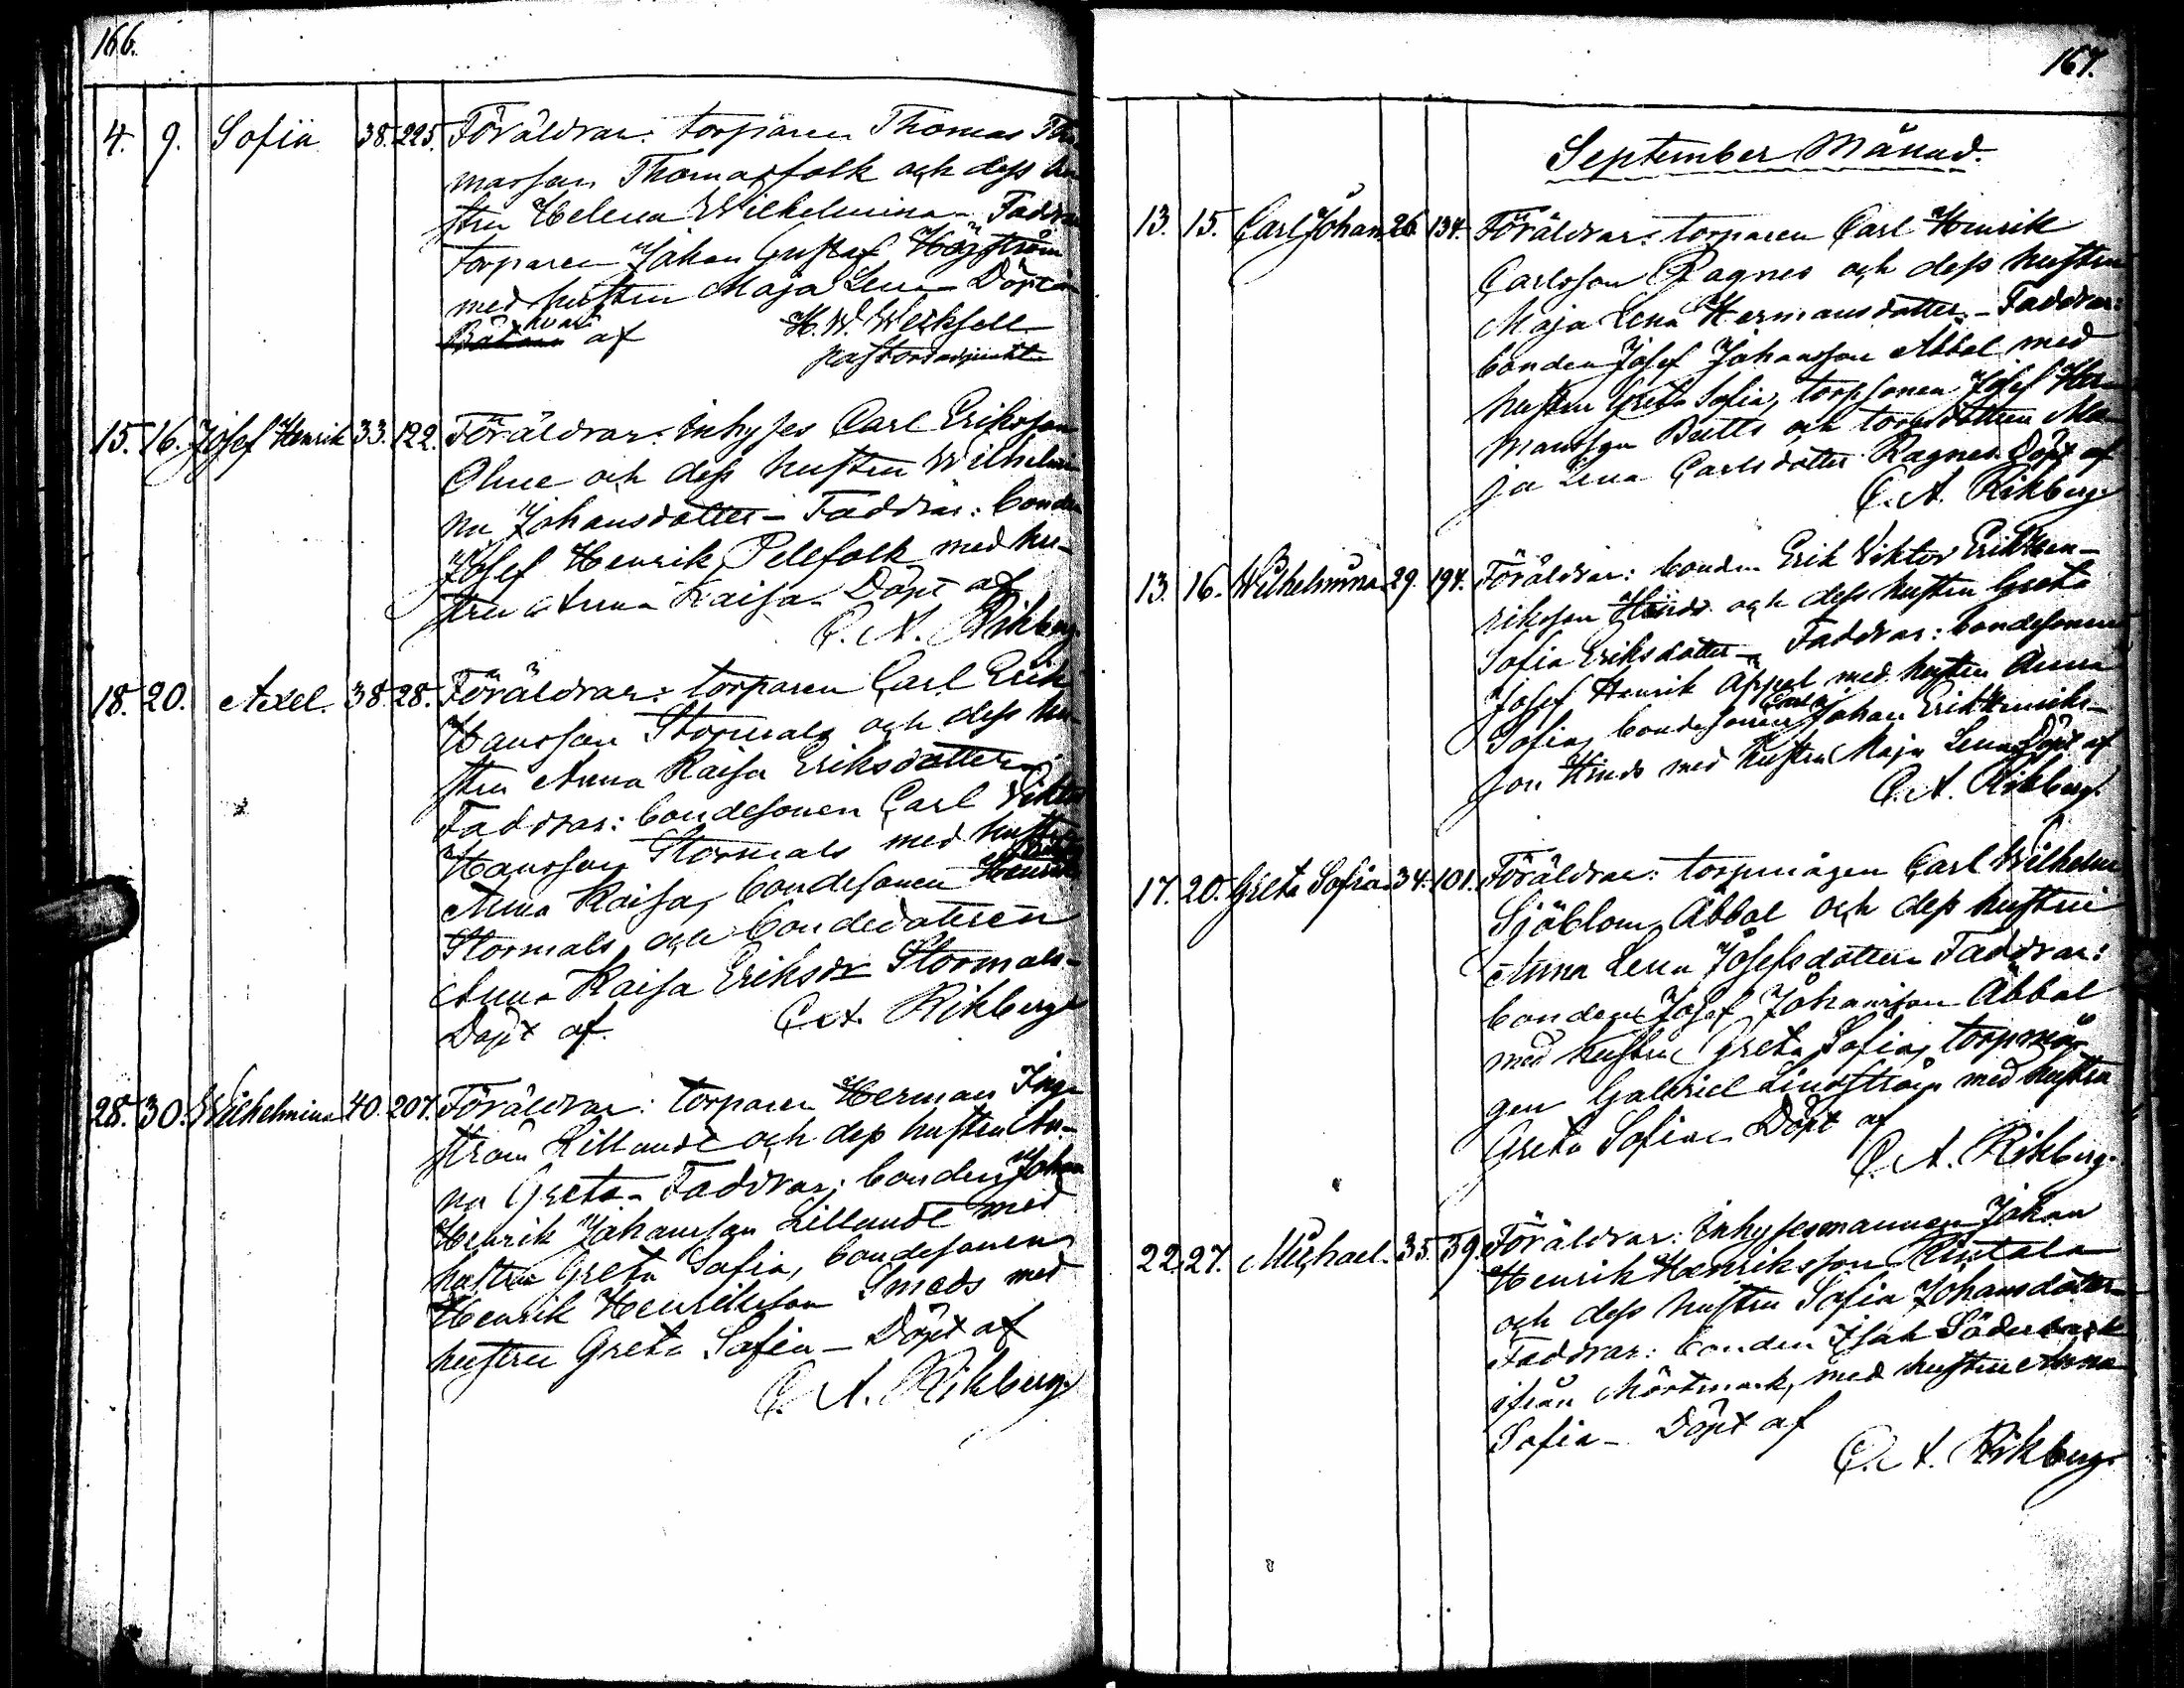 166.
4. 9. Sofia 38. 225. Föräldrar: torparen Thomas Tho
massson Thomasfolk och dess hu
stru Helena Wilhelmina - Faddrar
torparen Johan Gustaf Högström
med hustru Maja Lena - Döpt i
hvari
af H. W. Werksell
pastorsadjunkt
15. 16. Josef Henrik 33. 122. Föräldrar: Inhyses Carl Eriksson
Ohne och dess hustru Wilhelmi
na Johansdotter - Faddrar: bonden
Josef Henrik Pellfolk med hu-
stru Anna Kaisa - Döpt af
C. A. Rikberg.
18. 20. Axel. 38. 28. Föräldrar: torparen Carl Erik
Hansson Stormals och dess hu
stru Anna Kaisa Eriksdotter
Faddrar: bondesonen Carl Viktor
Hansson Stormals med hustru
Anna Kaisa, bondesonen
Stormals och bondedottren
Anna Kaisa Eriksdr Stormals -
Döpt af C. A. Rikberg
28. 30. Wilhelmina 40. 207. Föräldrar: torparen Herman Ing-
ström Lillaude och dess hustru An-
na Greta - Faddrar: bonden Johan
Henrik Johansson Lillaude med
hustru Greta Sofia, bondesonen
Henrik Henriksson Smeds med
hustru Greta Sofia - Döpt af
C. A. Rikberg.
167.
September Månad.
13. 15. Carl Johan 26. 134. Föräldrar: torparen Carl Henrik
Carlsson Ragnes och dess hustru
Maja Lena Hermansdotter - Faddrar:
bonden Josef Johansson Abbal med
hustru Greta Sofia, torpsonen Josef Her-
mansson Butts och torpdottren Ma-
ja Lena Carlsdotter Ragnes. Döpt af
C. A. Rikberg
13. 16. Wilhelmina 29. 194. Föräldrar: bonden Erik Viktor Erik Hen-
riksson Hinds och dess hustru Greta
Sofia Eriksdotter - Faddrar: bondesonen
Josef Henrik Appel med hustru Anna
Sofia, bondesonen Johan Erik Henriks-
son Hinds med hustru Maja Lena Döpt af
C. A. Rikberg.
17. 20. Greta Sofia 34. 101. Föräldrar: torpmågen Carl Wilhelm
Sjöblom Abbal och dess hustru
Anna Lena Josefsdotter Faddrar:
bonden Josef Johansson Abbal
med hustru Greta Sofia, torpmå-
gen Gabriel Lindström med hustru
Greta Sofia - Döpt af
C. A. Rikberg.
22. 27. Michael. 35. 39. Föräldrar: Inhysesmannen Johan
Henrik Henriksson Rintala
och dess hustru Sofia Johansdotter
Faddrar: bonden Isak Söderback
ifrån Mörtmark, med hustru Anna
Sofia - Döpt af
C. A. Rikberg.